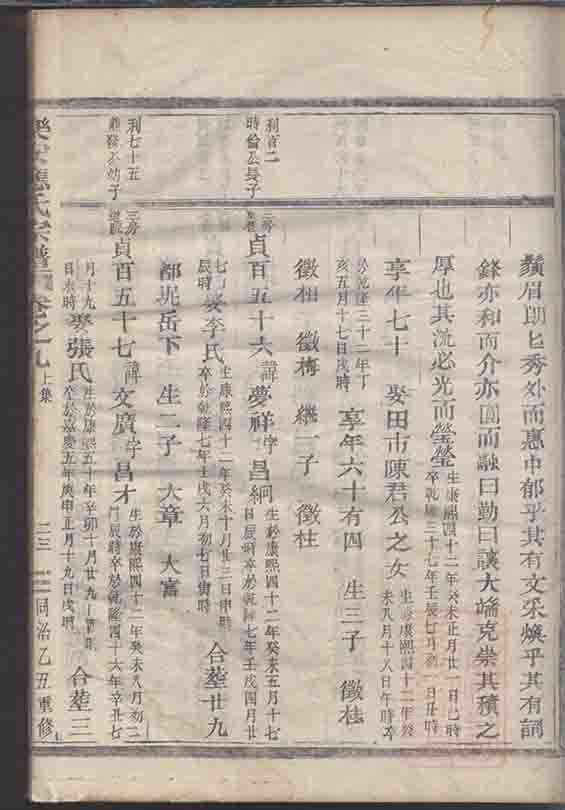 鬚眉朗匕秀外而惠中郁乎其有文采煥乎其有詞
鋒亦和而介亦圓而融曰勤曰讓大端克崇其積之
厚也其流必光而瑩瑩
生康熙四十二年癸未正月廿一日巳時
卒乾隆三十七年壬辰七月初一日丑時
享年七十
娶田市陳君公之女
生康熙四十二年癸
未八月十八日午時卒
於乾隆三十二年丁
亥五月十七日戌時
享年六十有四
生三子
徵桂
徵柏
徵梅
繼一子
徵柱
利百二
時倫公長子
三房
貞百五十六
諱
夢祥
字
昌綱
生於康熙四十二年癸未五月十七
日辰時卒於乾隆七年壬戌四月廿
七
辰時
娶李氏
生康熙四十二年癸未十月廿三日申時
卒於乾隆七年壬戌六月初七日寅時
合塟廿九
都坭岳下
生二子
大章
大富
利七十五
幼子
三房
貞百五十七
諱
文廣
字
昌才
生於康熙四十二年癸未八月初二
日辰時卒於乾隆四十六年辛丑七
月十九
日未時
娶張氏
生於康熙五十年辛卯十月廿九日
卒於嘉慶五年庚申正月十九日戌時
合塟三
氏宗譜
卷之九
上集
同治乙丑重修